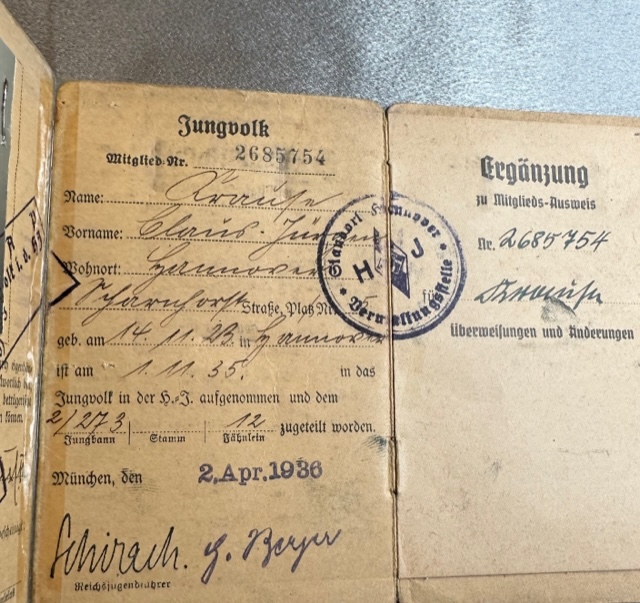 Jungvolk
Mitglied-Nr. 2685754
Name: Krause
Vorname: Claus-Jürgen
Wohnort: Hannover
Scharnhorst Straße, Platz Nr. 5
geb. am 14. 11. 23 in Hannover
ist am 1. 11. 35. in das
Jungvolk in der H.-J. aufgenommen und dem
2/273 12 zugeteilt worden.
Jungbann Stamm Fähnlein
München, den 2. Apr. 1936
Schirach. G. Berger
Reichsjugendführer
Standort Hannover
H J
Verwaltungsstelle
Ergänzung
zu Mitglieds-Ausweis
Nr. 2685754
für Krause
Überweisungen und Änderungen